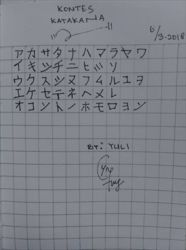 KONTES
KATAKANA
6/9-2018
アカサタナハマラヤワ
イキシチニヒミリ
ウクスツヌフムルユヲ
エケセテネヘメレ
オコソトノホモロヨン
BY: YULI